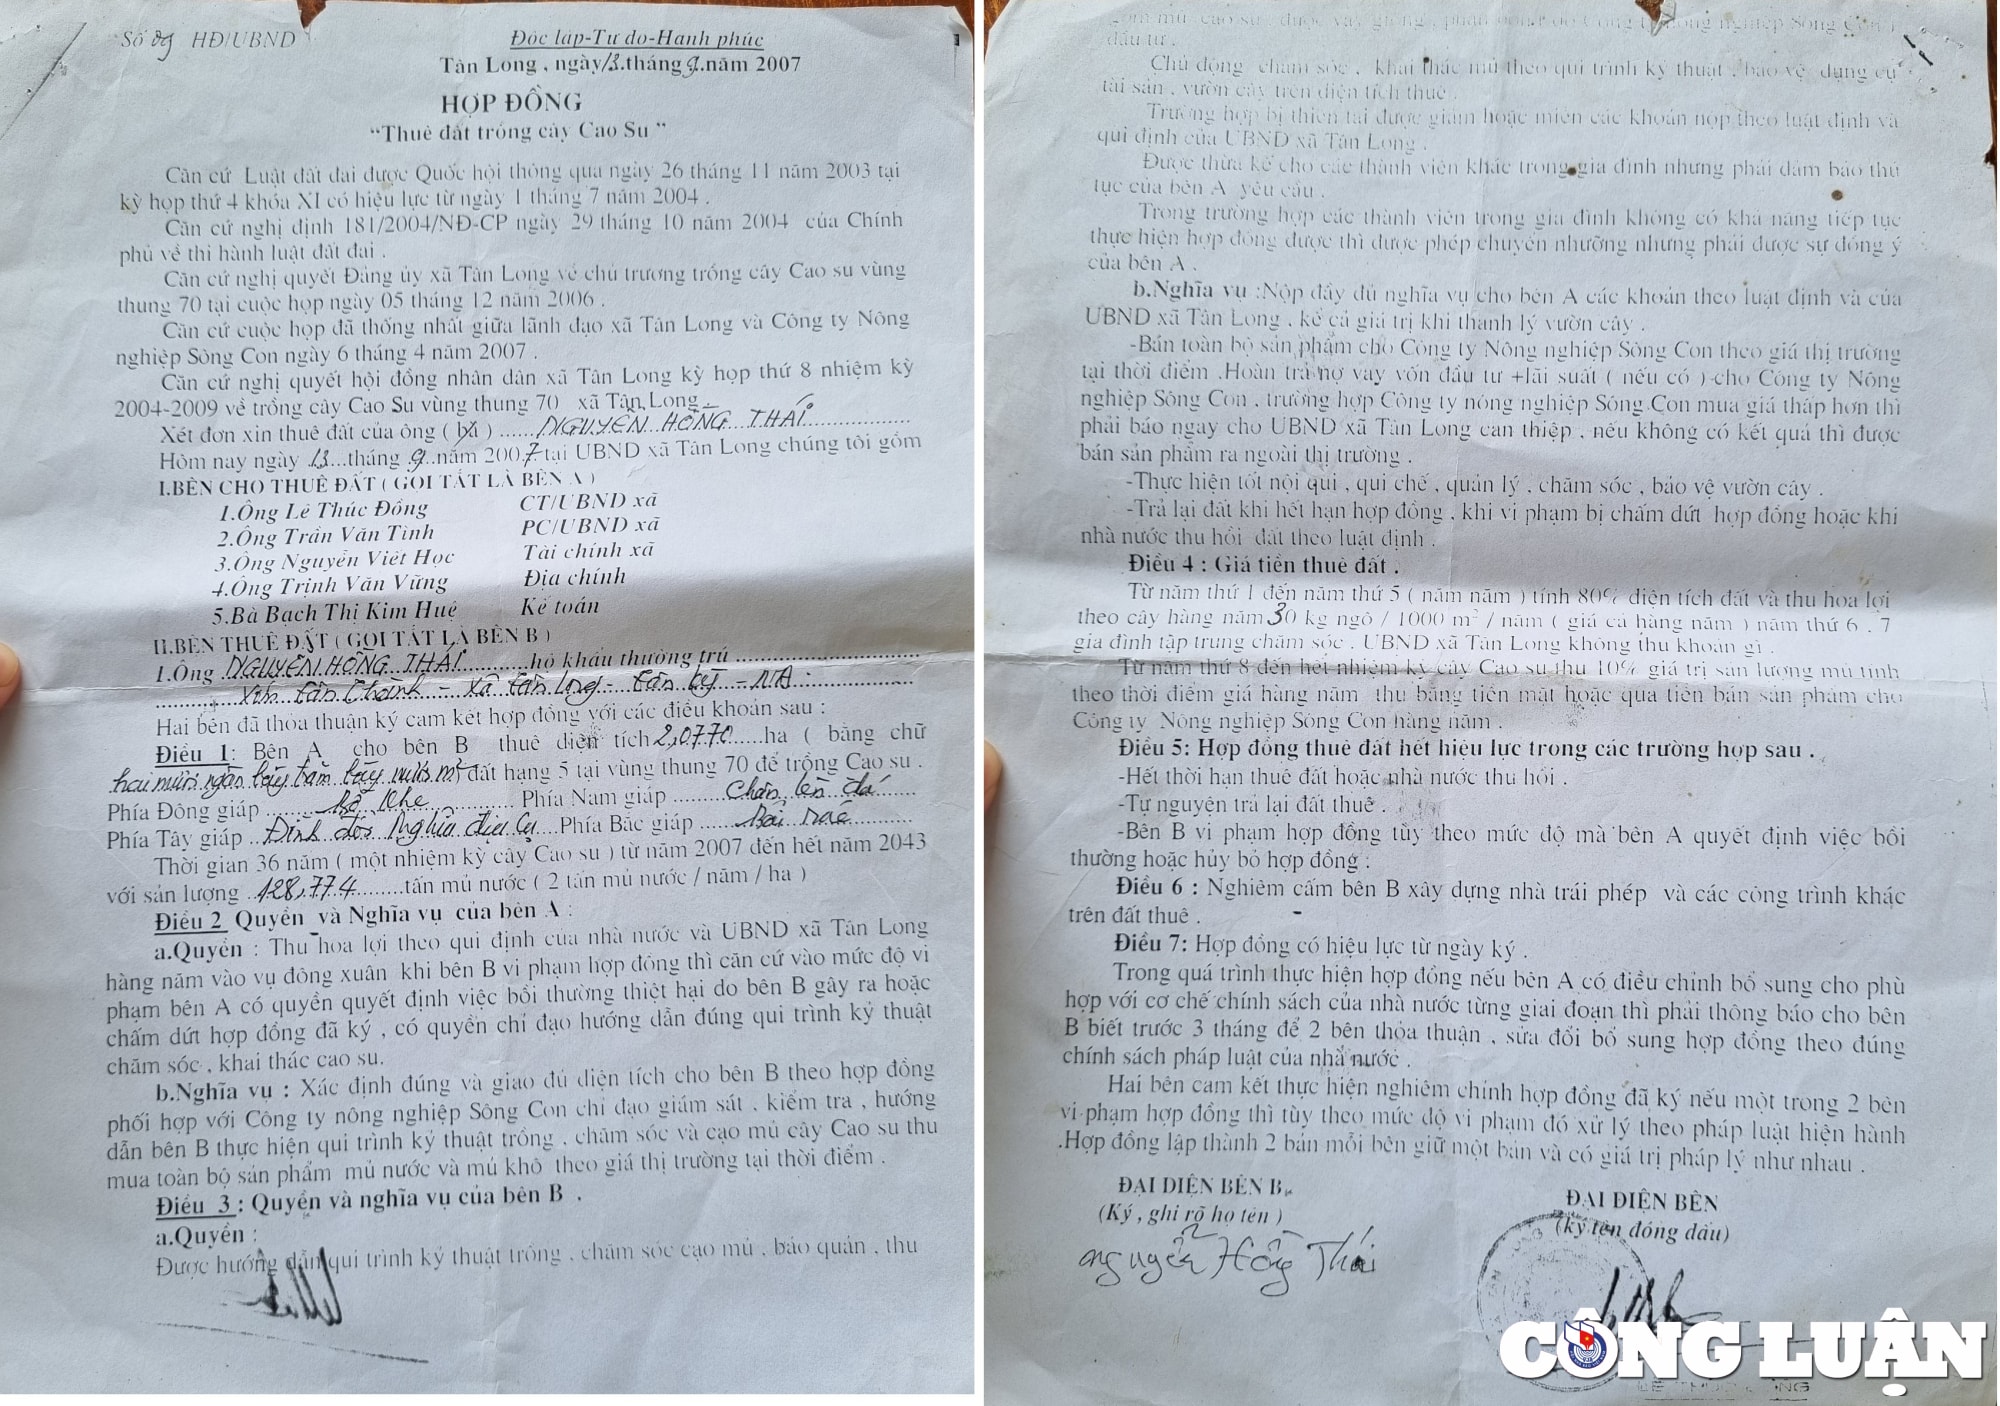 Số 09 HĐ/UBND
Độc lập-Tự do-Hạnh phúc
Tân Long , ngày 13.tháng 9.năm 2007
HỢP ĐỒNG
“Thuê đất trồng cây Cao Su ”
Căn cứ Luật đất đai được Quốc hội thông qua ngày 26 tháng 11 năm 2003 tại
kỳ họp thứ 4 khóa XI có hiệu lực từ ngày 1 tháng 7 năm 2004 .
Căn cứ nghị định 181/2004/NĐ-CP ngày 29 tháng 10 năm 2004 của Chính
phủ về thi hành luật đất đai .
Căn cứ nghị quyết Đảng ủy xã Tân Long về chủ trương trồng cây Cao su vùng
thung 70 tại cuộc họp ngày 05 tháng 12 năm 2006 .
Căn cứ cuộc họp đã thống nhất giữa lãnh đạo xã Tân Long và Công ty Nông
nghiệp Sông Con ngày 6 tháng 4 năm 2007 .
Căn cứ nghị quyết hội đồng nhân dân xã Tân Long kỳ họp thứ 8 nhiệm kỳ
2004-2009 về trồng cây Cao Su vùng thung 70 xã Tân Long .
Xét đơn xin thuê đất của ông ( bà ) ......NGUYỄN HỒNG THÁI..............
Hôm nay ngày 13...tháng .9..năm 2007 tại UBND xã Tân Long chúng tôi gồm
I.BÊN CHO THUÊ ĐẤT ( GỌI TẮT LÀ BÊN A )
1.Ông Lê Thúc Đồng CT/UBND xã
2.Ông Trần Văn Tình PC/UBND xã
3.Ông Nguyễn Viết Học Tài chính xã
4.Ông Trịnh Văn Vững Địa chính
5.Bà Bạch Thị Kim Huệ Kế toán
II.BÊN THUÊ ĐẤT ( GỌI TẮT LÀ BÊN B )
1.Ông NGUYỄN HỒNG THÁI..........hộ khẩu thường trú ........................
Xóm tân thành - xã tân long - tân kỳ - NA.
Hai bên đã thỏa thuận ký cam kết hợp đồng với các điều khoản sau :
Điều 1: Bên A cho bên B thuê diện tích 2,0770......ha ( bằng chữ
hai mươi ngàn bảy trăm bảy mươi m² đất hạng 5 tại vùng thung 70 để trồng Cao su .
Phía Đông giáp ......... Khe ............ Phía Nam giáp .........Chân lèn đá
Phía Tây giáp ..Đỉnh đồi Nghĩa địa cụ....Phía Bắc giáp ...... Bãi rác ..........
Thời gian 36 năm ( một nhiệm kỳ cây Cao su ) từ năm 2007 đến hết năm 2043
với sản lượng .128,774.........tấn mủ nước ( 2 tấn mủ nước / năm / ha )
Điều 2 Quyền và Nghĩa vụ của bên A :
a.Quyền : Thu hoa lợi theo qui định của nhà nước và UBND xã Tân Long
hàng năm vào vụ đông xuân khi bên B vi phạm hợp đồng thì căn cứ vào mức độ vi
phạm bên A có quyền quyết định việc bồi thường thiệt hại do bên B gây ra hoặc
chấm dứt hợp đồng đã ký , có quyền chỉ đạo hướng dẫn đúng qui trình kỷ thuật
chăm sóc , khai thác cao su.
b.Nghĩa vụ : Xác định đúng và giao đủ diện tích cho bên B theo hợp đồng
phối hợp với Công ty nông nghiệp Sông Con chỉ đạo giám sát , kiểm tra , hướng
dẫn bên B thực hiện qui trình kỷ thuật trồng , chăm sóc và cạo mủ cây Cao su thu
mua toàn bộ sản phẩm mủ nước và mủ khô theo giá thị trường tại thời điểm .
Điều 3 : Quyền và nghĩa vụ của bên B .
a.Quyền :
Được hướng dẫn qui trình kỷ thuật trồng , chăm sóc cạo mủ , bảo quản , thu
gom mủ cao su , được vay giống , phân bón do Công ty Nông nghiệp Sông Con
đầu tư .
Chủ động chăm sóc , khai thác mủ theo qui trình kỷ thuật , bảo vệ dụng cụ
tài sản , vườn cây trên diện tích thuê .
Trường hợp bị thiên tai được giảm hoặc miễn các khoản nộp theo luật định và
qui định của UBND xã Tân Long .
Được thừa kế cho các thành viên khác trong gia đình nhưng phải đảm bảo thủ
tục của bên A yêu cầu .
Trong trường hợp các thành viên trong gia đình không có khả năng tiếp tục
thực hiện hợp đồng được thì được phép chuyển nhượng nhưng phải được sự đồng ý
của bên A .
b.Nghĩa vụ :Nộp đầy đủ nghĩa vụ cho bên A các khoản theo luật định và của
UBND xã Tân Long , kể cả giá trị khi thanh lý vườn cây .
-Bán toàn bộ sản phẩm cho Công ty Nông nghiệp Sông Con theo giá thị trường
tại thời điểm .Hoàn trả nợ vay vốn đầu tư +lãi suất ( nếu có ) cho Công ty Nông
nghiệp Sông Con , trường hợp Công ty nông nghiệp Sông Con mua giá thấp hơn thì
phải báo ngay cho UBND xã Tân Long can thiệp , nếu không có kết quả thì được
bán sản phẩm ra ngoài thị trường .
-Thực hiện tốt nội qui , qui chế , quản lý , chăm sóc , bảo vệ vườn cây .
-Trả lại đất khi hết hạn hợp đồng , khi vi phạm bị chấm dứt hợp đồng hoặc khi
nhà nước thu hồi đất theo luật định .
Điều 4 : Giá tiền thuê đất .
Từ năm thứ 1 đến năm thứ 5 ( năm năm ) tính 80% diện tích đất và thu hoa lợi
theo cây hàng năm 30 kg ngô / 1000 m² / năm ( giá cả hàng năm ) năm thứ 6 , 7
gia đình tập trung chăm sóc . UBND xã Tân Long không thu khoản gì .
Từ năm thứ 8 đến hết nhiệm kỳ cây Cao su thu 10% giá trị sản lượng mủ tính
theo thời điểm giá hàng năm thu bằng tiền mặt hoặc qua tiền bán sản phẩm cho
Công ty Nông nghiệp Sông Con hàng năm .
Điều 5: Hợp đồng thuê đất hết hiệu lực trong các trường hợp sau .
-Hết thời hạn thuê đất hoặc nhà nước thu hồi .
-Tự nguyện trả lại đất thuê .
-Bên B vi phạm hợp đồng tùy theo mức độ mà bên A quyết định việc bồi
thường hoặc hủy bỏ hợp đồng :
Điều 6 : Nghiêm cấm bên B xây dựng nhà trái phép và các công trình khác
trên đất thuê .
Điều 7: Hợp đồng có hiệu lực từ ngày ký .
Trong quá trình thực hiện hợp đồng nếu bên A có điều chỉnh bổ sung cho phù
hợp với cơ chế chính sách của nhà nước từng giai đoạn thì phải thông báo cho bên
B biết trước 3 tháng để 2 bên thỏa thuận , sửa đổi bổ sung hợp đồng theo đúng
chính sách pháp luật của nhà nước .
Hai bên cam kết thực hiện nghiêm chỉnh hợp đồng đã ký nếu một trong 2 bên
vi phạm hợp đồng thì tùy theo mức độ vi phạm đó xử lý theo pháp luật hiện hành
.Hợp đồng lập thành 2 bản mỗi bên giữ một bản và có giá trị pháp lý như nhau .
ĐẠI DIỆN BÊN B.
(Ký , ghi rõ họ tên )
Nguyễn Hồng Thái
ĐẠI DIỆN BÊN
(ký tên đóng dấu)
CÔNG LUẬN